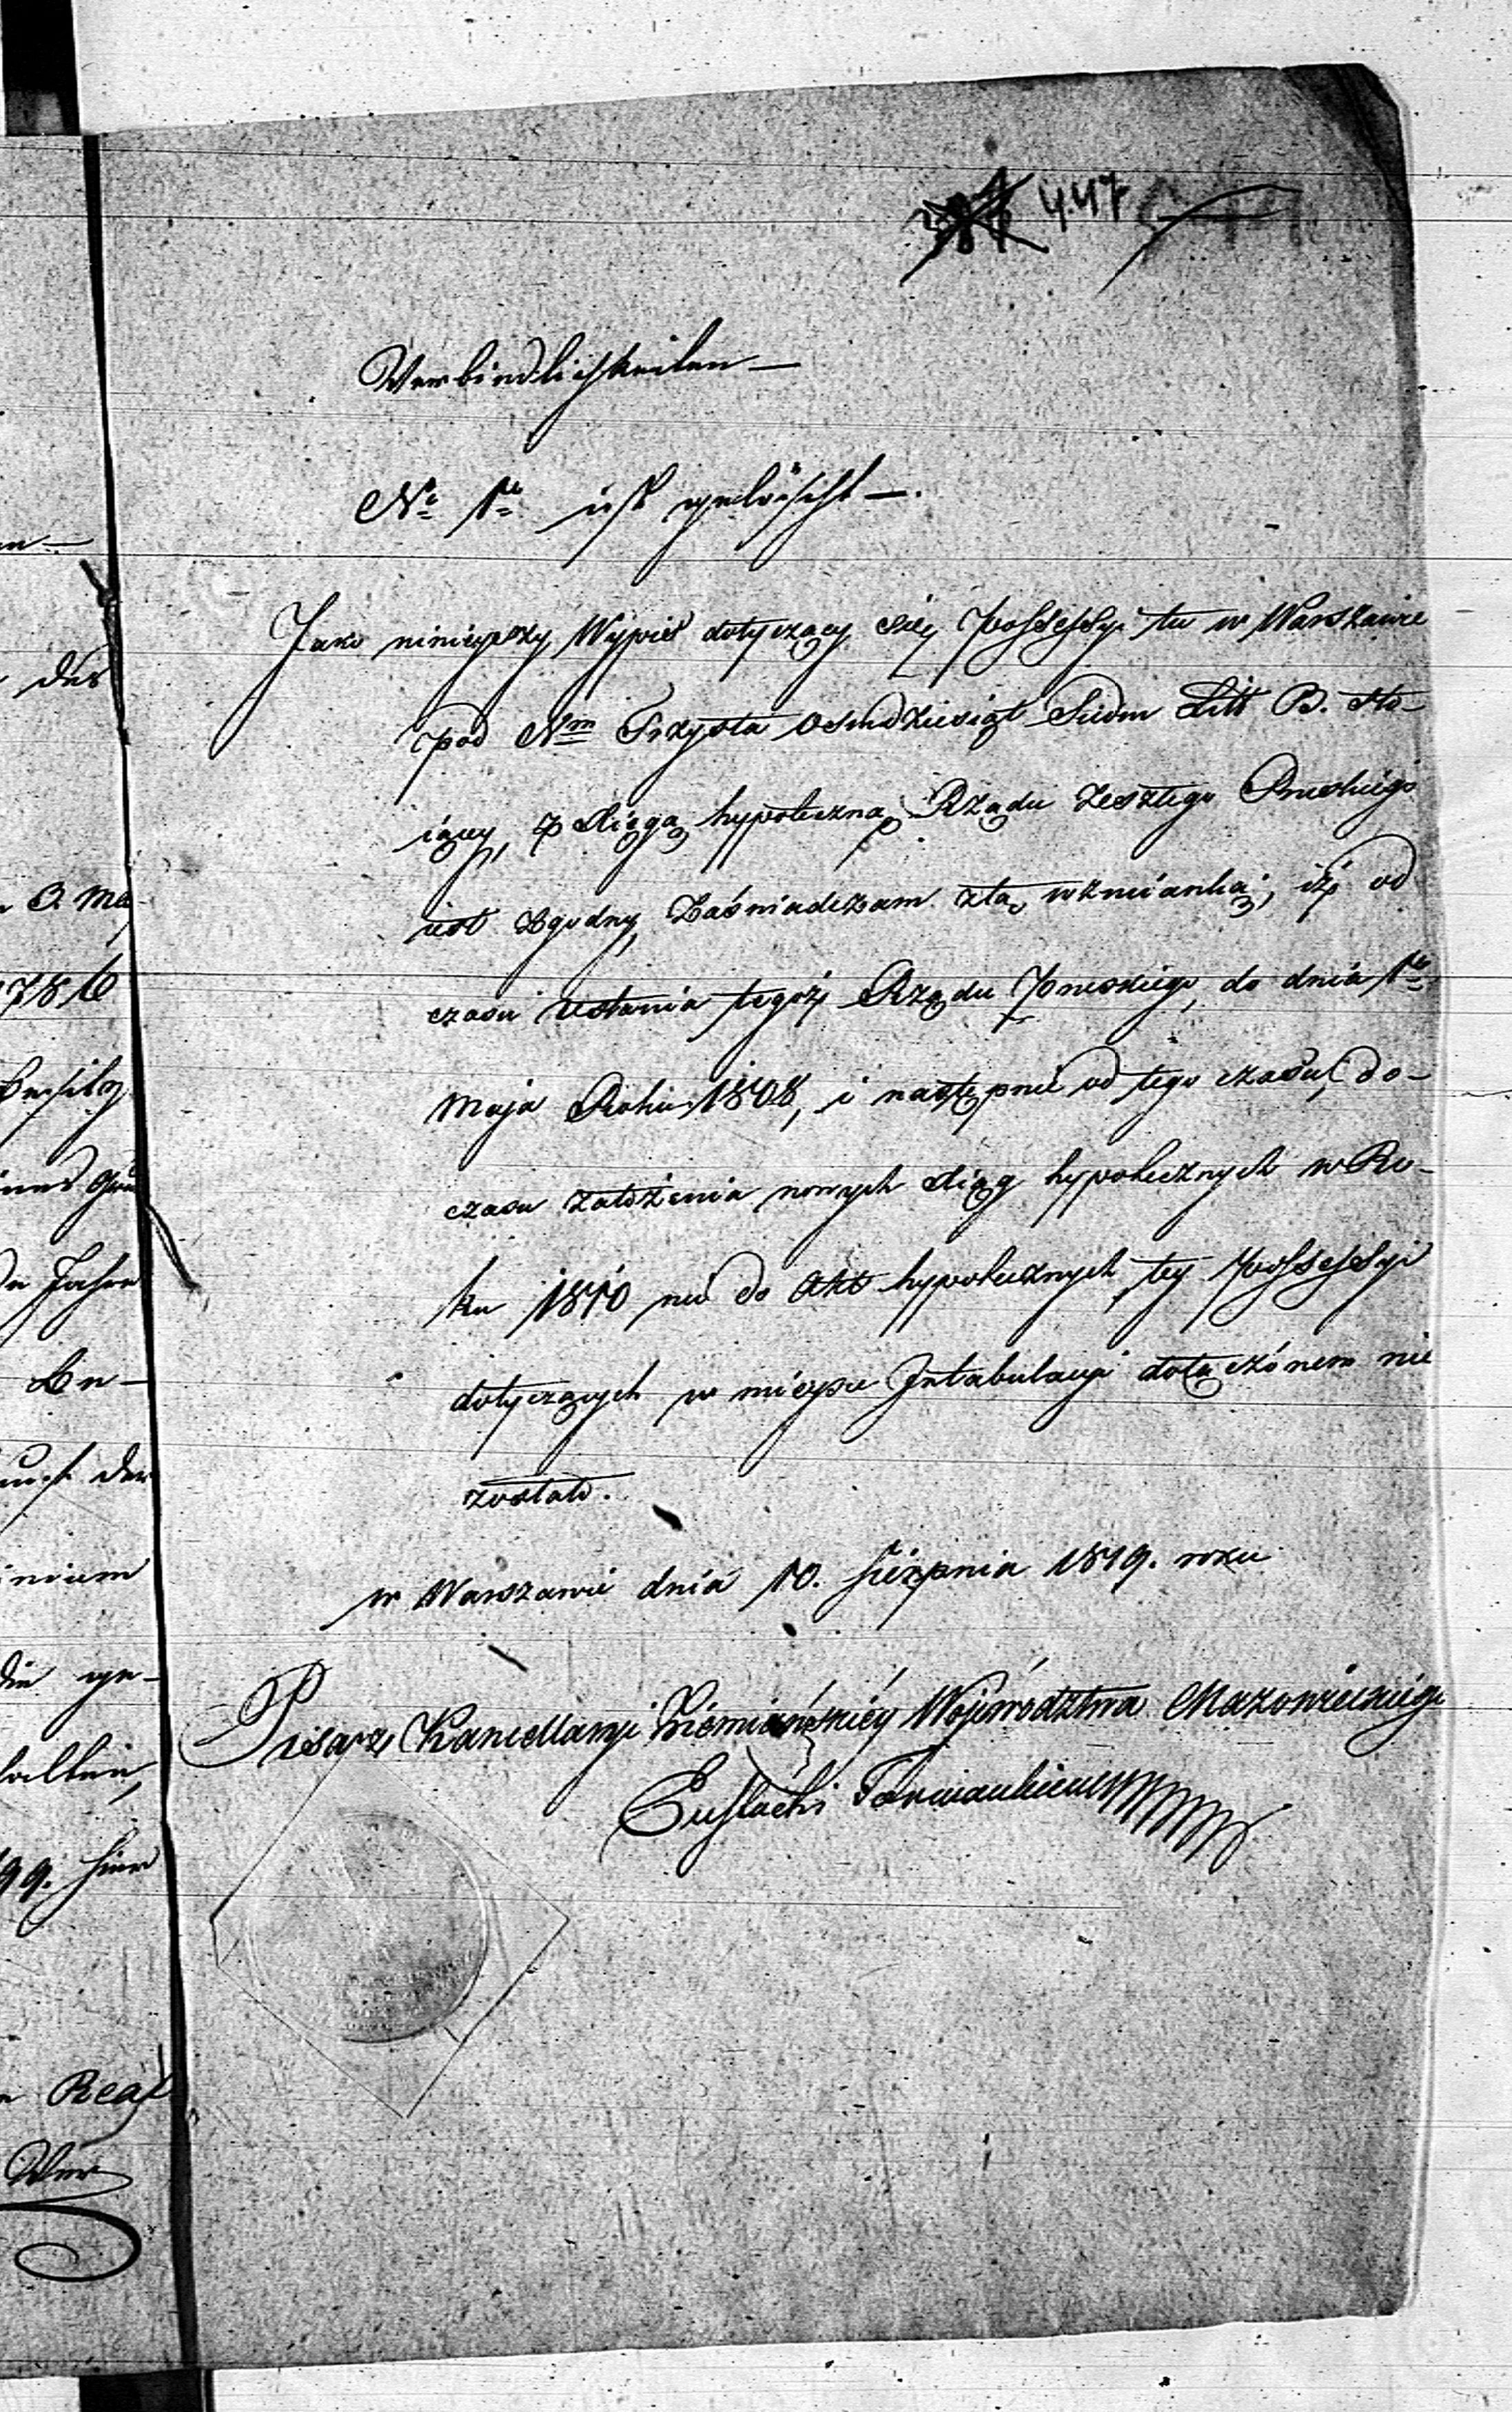 447
Verbindlichkeiten —
No 1o ist gelöscht —.
Jako ninieyszy Wypis dotyczący się Possessyi tu w Warszawie
pod Nrm Trzysta osmdziesiąt Siedm Litt B. sto-
iącey, z Xięgą hypoteczną Rządu zeszłego Pruskiego
iest zgodny, Zaświadczam z tą wzmianką, iż od
czasu ustania tegoż Rządu Pruskiego, do dnia 1o
Maja Roku 1808, i następnie od tego czasu, do-
czasu założenia nowych Xiąg hypotecznych w Ro-
ku 1810 nic do Akt hypotecznych tey Possessyi
dotyczących w mieyscu Intabulacyi dołączonem nie
zostało.
w Warszawie dnia 10. Sierpnia 1819. roku
Pisarz Kancellaryi Ziemiańskiéy Województwa Mazowieckiego
Eustachi
des
3. Ma
Jahre
der
die ge-
99. hier
Real
Ver